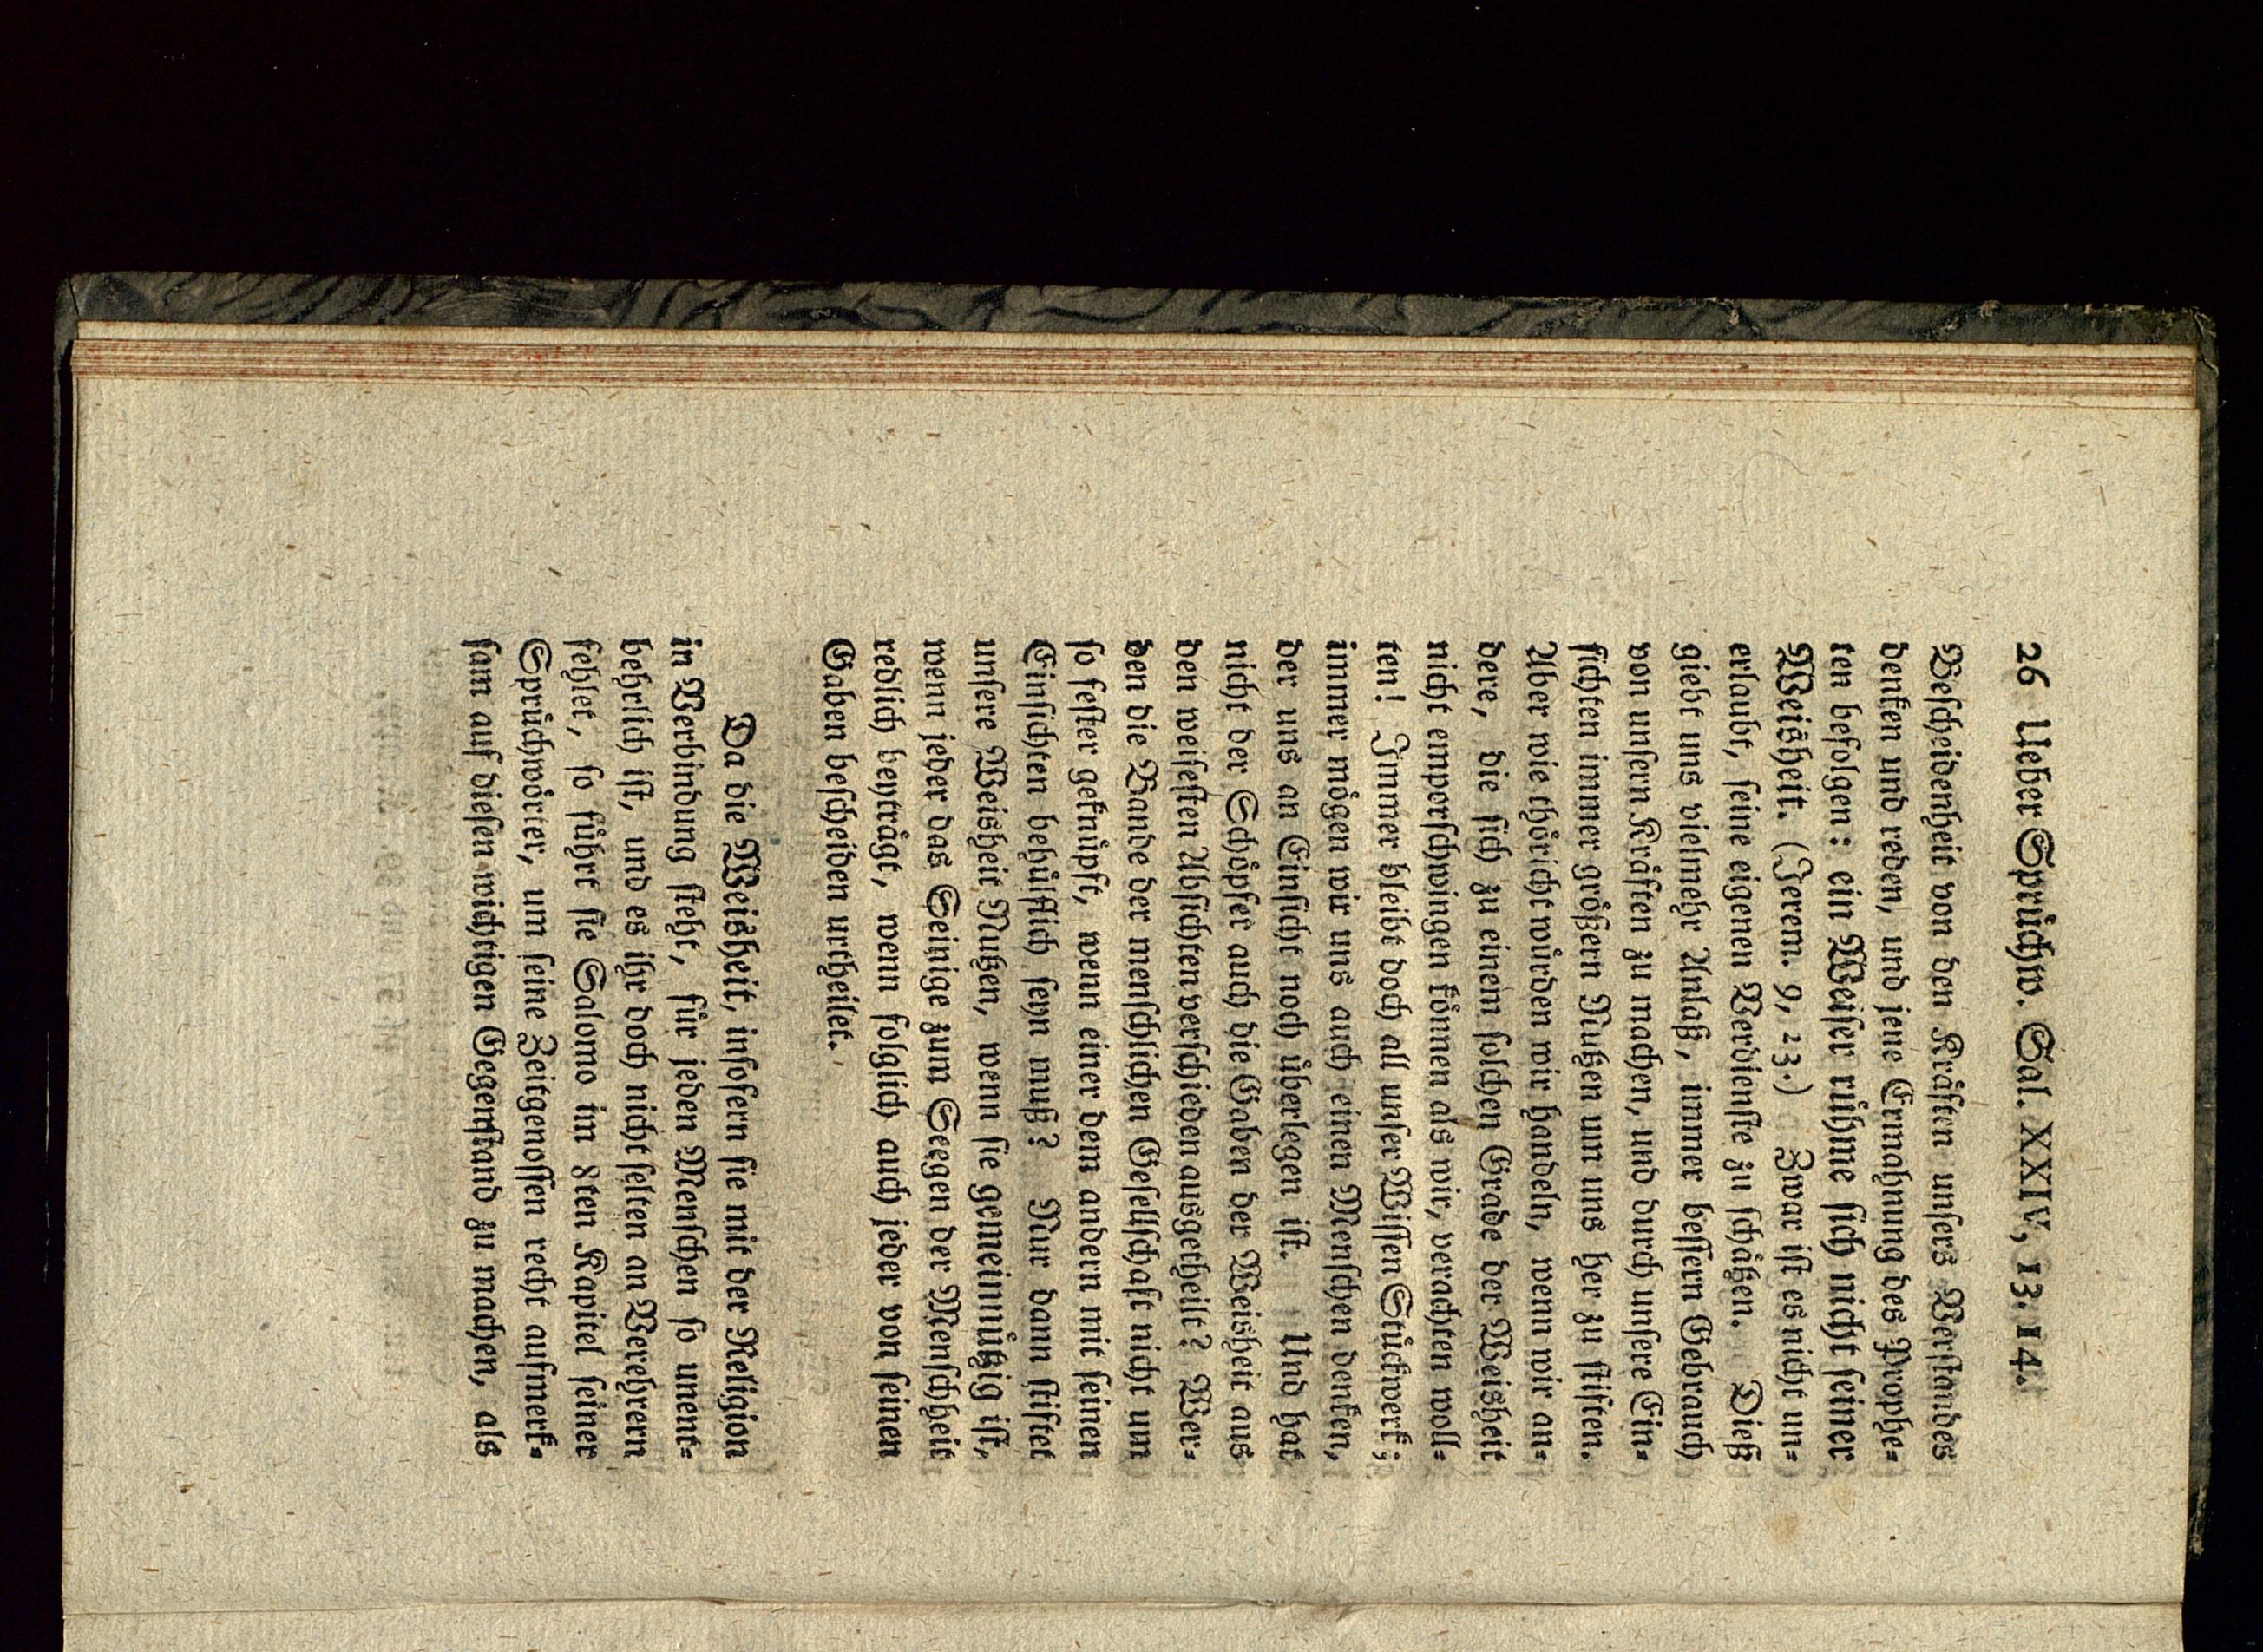 26 Ueber Sprüchw. Sal. XXIV, 13. 14.
Bescheidenheit von den Kräften unsers Verstandes
denken und reden, und jene Ermahnung des Prophe-
ten befolgen: ein Weiser rühme sich nicht seiner
Weisheit. (Jerem. 9, 23.) Zwar ist es nicht un-
erlaubt, seine eigenen Verdienste zu schätzen. Dieß
giebt uns vielmehr Anlaß, immer bessern Gebrauch
von unsern Kräften zu machen, und durch unsere Ein-
sichten immer größern Nutzen um uns her zu stiften.
Aber wie thöricht würden wir handeln, wenn wir an-
dere, die sich zu einem solchen Grade der Weisheit
nicht emporschwingen können als wir, verachten woll-
ten! Immer bleibt doch all unser Wissen Stückwerk;
immer mögen wir uns auch einen Menschen denken,
der uns an Einsicht noch überlegen ist. Und hat
nicht der Schöpfer auch die Gaben der Weisheit aus
den weisesten Absichten verschieden ausgetheilt? Wer-
den die Bande der menschlichen Gesellschaft nicht um
so fester geknüpft, wenn einer dem andern mit seinen
Einsichten behülflich seyn muß? Nur dann stiftet
unsere Weisheit Nutzen, wenn sie gemeinnützig ist,
wenn jeder das Seinige zum Seegen der Menschheit
redlich beyträgt, wenn folglich auch jeder von seinen
Gaben bescheiden urtheilet.
Da die Weisheit, insofern sie mit der Religion
in Verbindung steht, für jeden Menschen so unent-
behrlich ist, und es ihr doch nicht selten an Verehrern
fehlet, so führt sie Salomo im 8ten Kapitel seiner
Sprüchwörter, um seine Zeitgenossen recht aufmerk-
sam auf diesen wichtigen Gegenstand zu machen, als